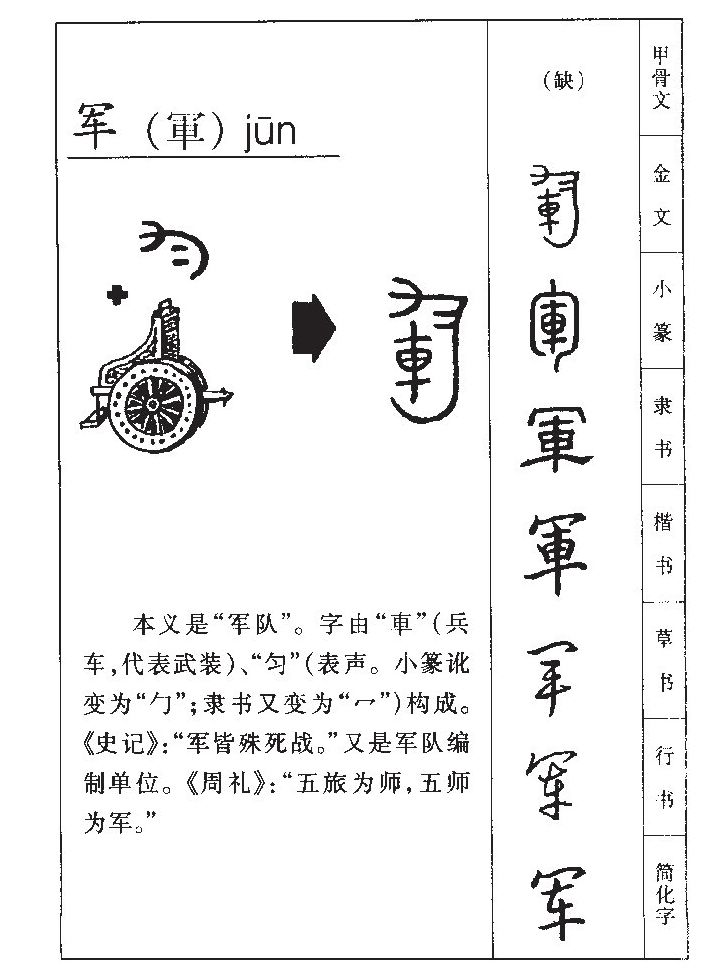 军（軍）jūn
本义是“军队”。字由“車”（兵
车,代表武装）、“匀”（表声。小篆讹
变为“勹”；隶书又变为“冖”）构成。
《史记》：“军皆殊死战。”又是军队编
制单位。《周礼》：“五旅为师,五师
为军。”
（缺）
軍
軍
軍
軍
军
军
军
甲骨文
金文
小篆
隶书
楷书
草书
行书
简化字